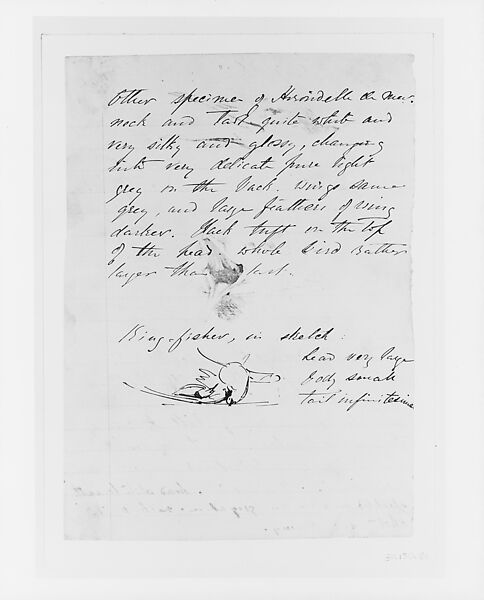 Other specimen of Hirondelle de Mer.
neck and tail quite white and
very silky and glossy, changing
into very delicate pure light
grey on the back. wings same
grey, and large feathers of wing
darker. Black tuft on the top
of the head. whole bird rather
larger than last.
King-fisher, in sketch:
head very large
body small
tail infinitesimal